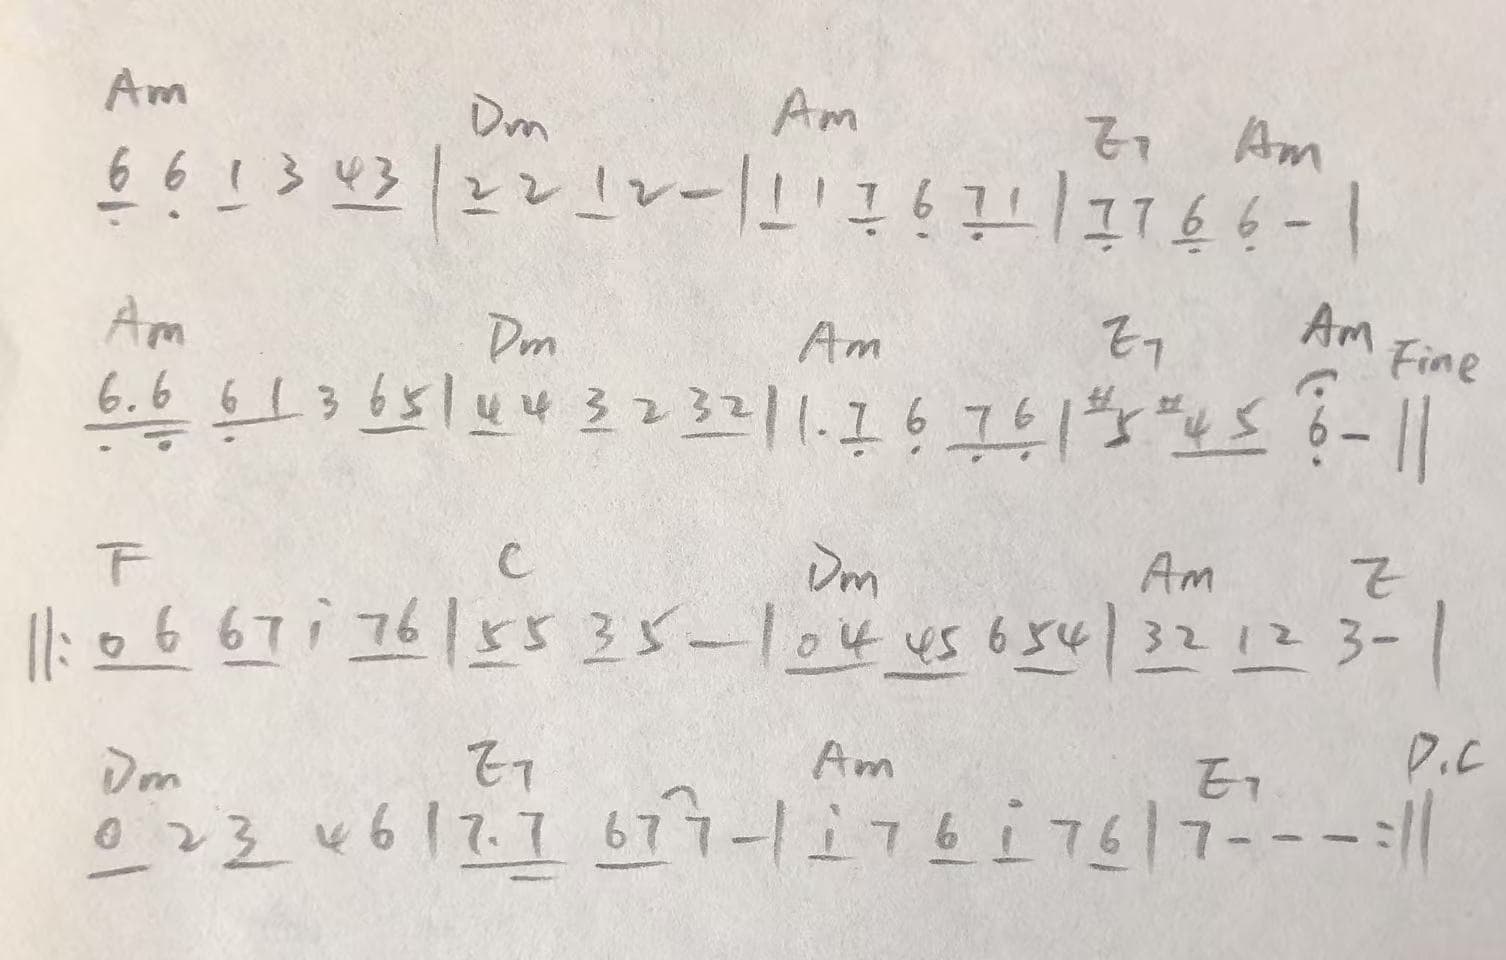 Am Dm Am E7 Am
6 6 1 3 43 | 2 2 1 2 – | 1 1 7 6 71 | 7 7 6 6 – |
Am Dm Am E7 Am Fine
6.6 61 3 65 | 4 4 3 2 32 | 1. 7 6 76 | #5 #45 6 – ||
F C Dm Am E
||: 06 67 i 76 | 5 5 3 5 – | 04 45 6 54 | 32 12 3 – |
Dm E7 Am E7 D.C
0 2 3 4 6 | 7.7 67 7 – | i 7 6 i 7 6 | 7 - - - :||